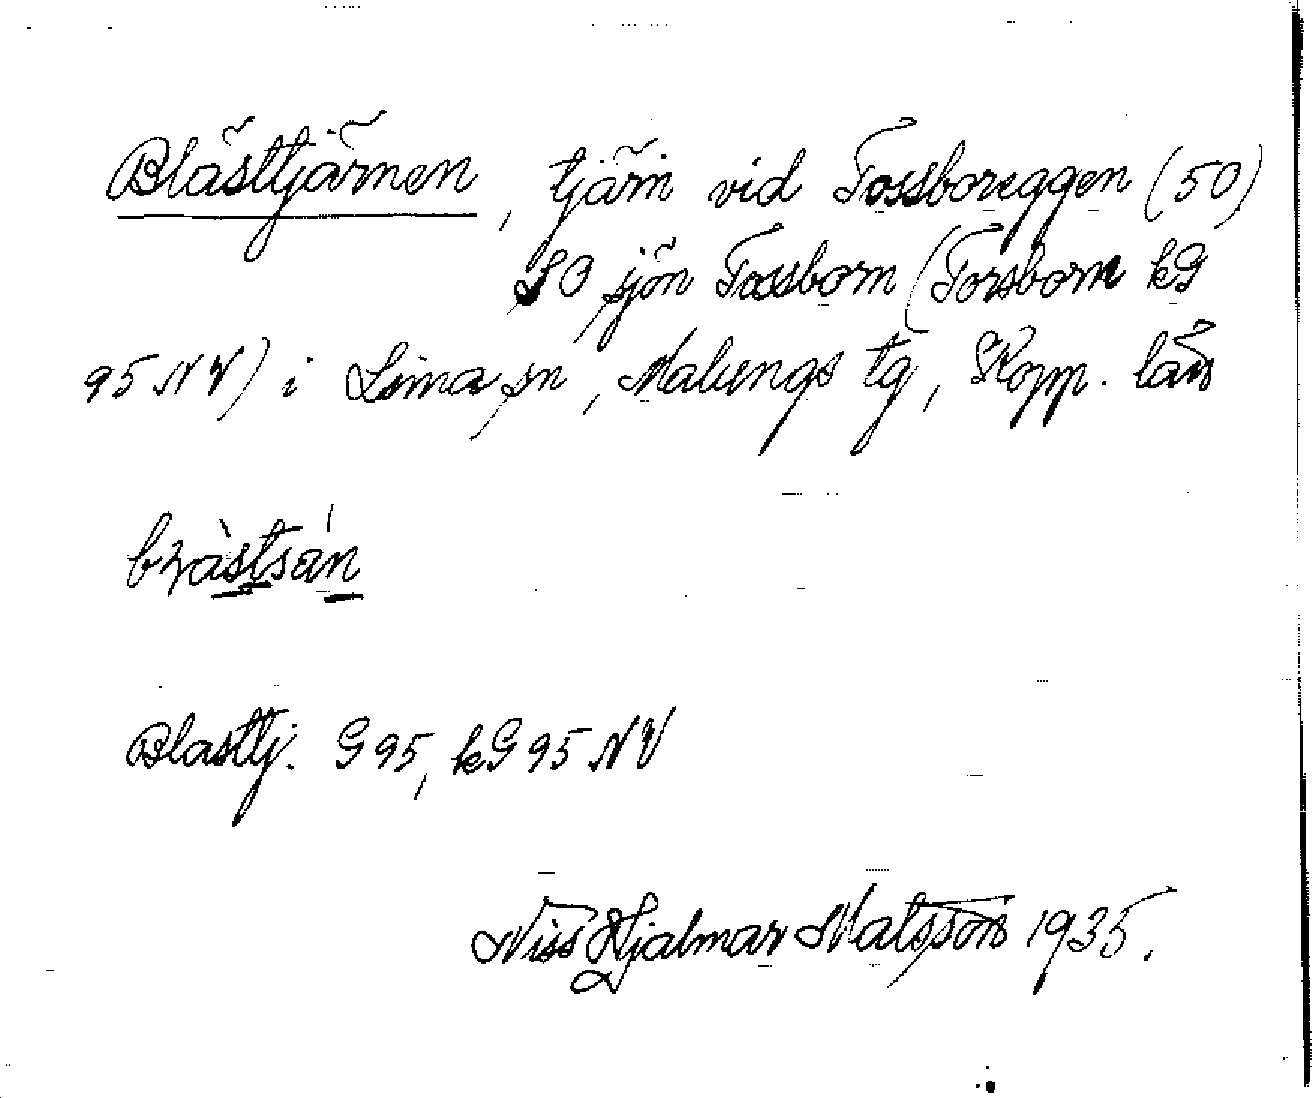 Blästtjärnen, tjärn vid Tossboreggen (50)
SO sjön Tossborn (Torsborn kG
95 NV) i Lima sn, Malungs tg, Kopp. län
bɽàstsán
Blasttj. G95, kG95 NV
Niss Hjalmar Matsson 1935.